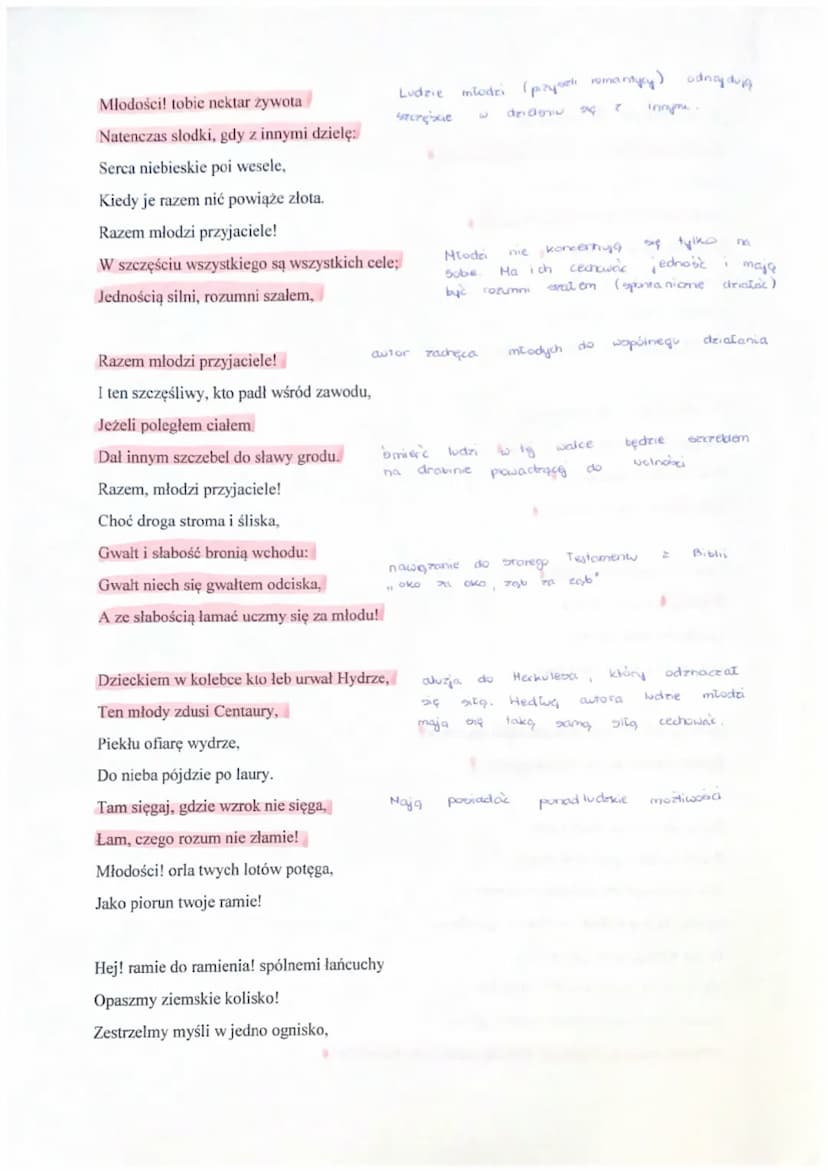 Młodości! tobie nektar żywota
Natenczas słodki, gdy z innymi dzielę:
Serca niebieskie poi wesele,
Kiedy je razem nić powiąże złota.
Razem młodzi przyjaciele!
W szczęściu wszystkiego są wszystkich cele;
Jednością silni, rozumni szałem,
Ludzie młodzi (przyszli romantycy) odnajdują
szczęście w dzieleniu się z innymi.
Młodzi nie koncentrują się tylko na
sobie. Ma ich cechować jedność i mają
być rozumni szałem (spontanicznie działać)
Razem młodzi przyjaciele!
I ten szczęśliwy, kto padł wśród zawodu,
Jeżeli poległem ciałem
Dał innym szczebel do sławy grodu.
Razem, młodzi przyjaciele!
Choć droga stroma i śliska,
Gwałt i słabość bronią wchodu:
Gwałt niech się gwałtem odciska,
A ze słabością łamać uczmy się za młodu!
autor zachęca młodych do wspólnego działania
śmierć ludzi w tej walce będzie szczeblem
na drabinie prowadzącej do wolności
nawiązanie do Starego Testamentu z Biblii
"oko za oko, ząb za ząb"
Dzieckiem w kolebce kto łeb urwał Hydrze,
Ten młody zdusi Centaury,
Piekłu ofiarę wydrze,
Do nieba pójdzie po laury.
Tam sięgaj, gdzie wzrok nie sięga,
Łam, czego rozum nie złamie!
Młodości! orla twych lotów potęga,
Jako piorun twoje ramie!
aluzja do Herkulesa, który odznaczał
się siłą. Według autora ludzie młodzi
mają się taką samą siłą cechować.
Mają posiadać ponadludzkie możliwości
Hej! ramie do ramienia! spólnemi łańcuchy
Opaszmy ziemskie kolisko!
Zestrzelmy myśli w jedno ognisko,